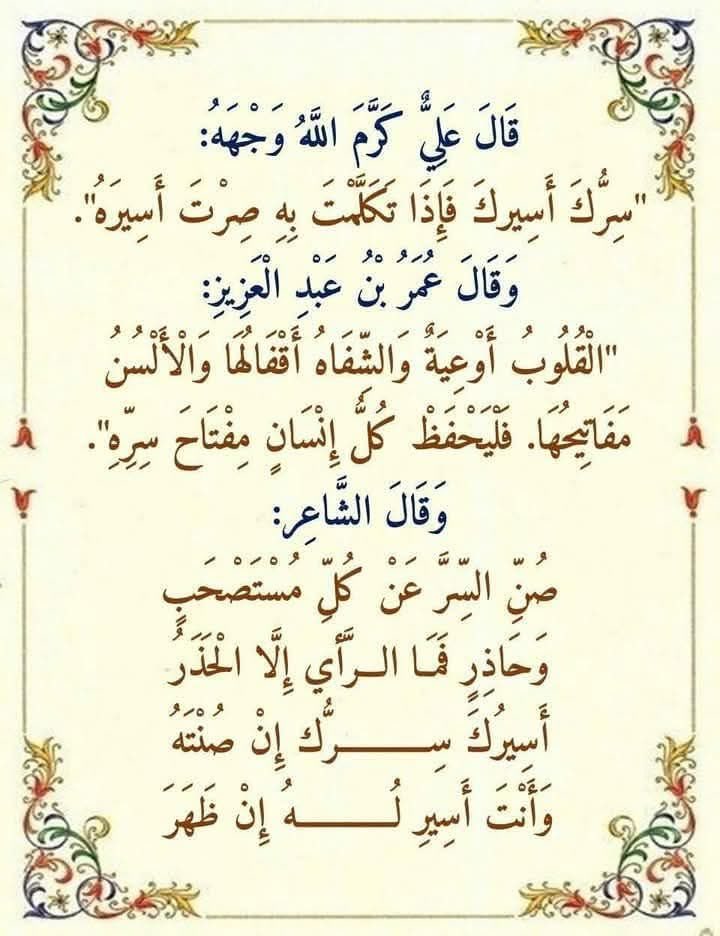 قَالَ عَلِيٌّ كَرَّمَ اللَّهُ وَجْهَهُ:
"سِرُّكَ أَسِيركَ فَإِذَا تَكَلَّمْتَ بِهِ صِرْتَ أَسِيرَهُ".
وَقَالَ عُمَرُ بْنُ عَبْدِ الْعَزِيزِ:
"الْقُلُوبُ أَوْعِيَةٌ وَالشِّفَاهُ أَقْفَالُهَا وَالْأَلْسُنُ
مَفَاتِيحُهَا. فَلْيَحْفَظْ كُلُّ إِنْسَانٍ مِفْتَاحَ سِرِّهِ".
وَقَالَ الشَّاعِر:
صُنِّ السِّرَّ عَنْ كُلِّ مُسْتَصْحَبٍ
وَحَاذِرٍ فَمَا الـرَّأي إِلَّا الْحَذَرُ
أَسِيرُكَ سِـــــرُّك إِنْ صُنْتَهُ
وَأَنْتَ أَسِيرِ لُـــــهُ إِنْ ظَهَرَ